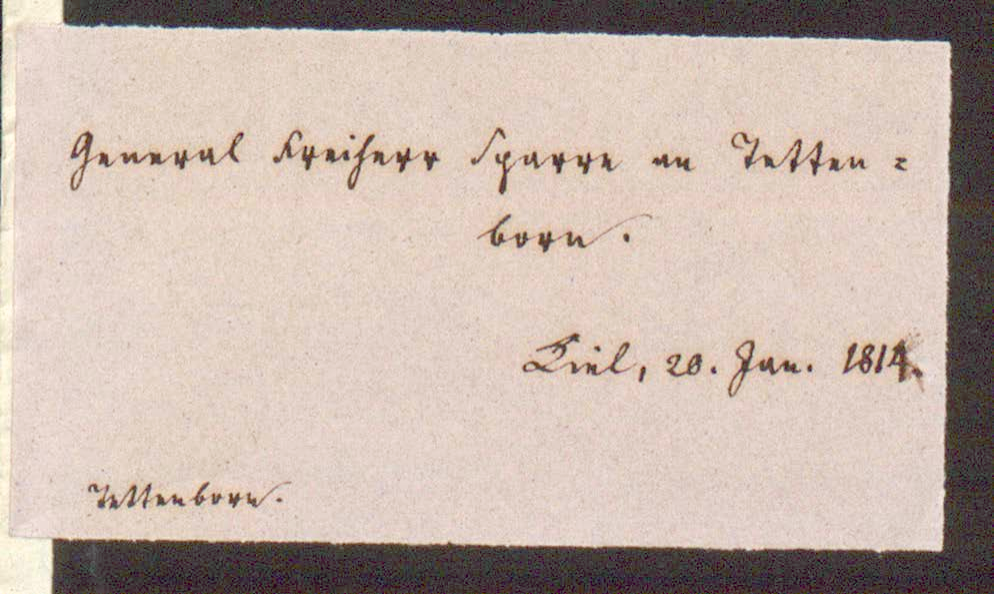 General Freiherr Sparre an Tetten=
born.
Kiel, 20. Jan. 1814.
Tettenborn.